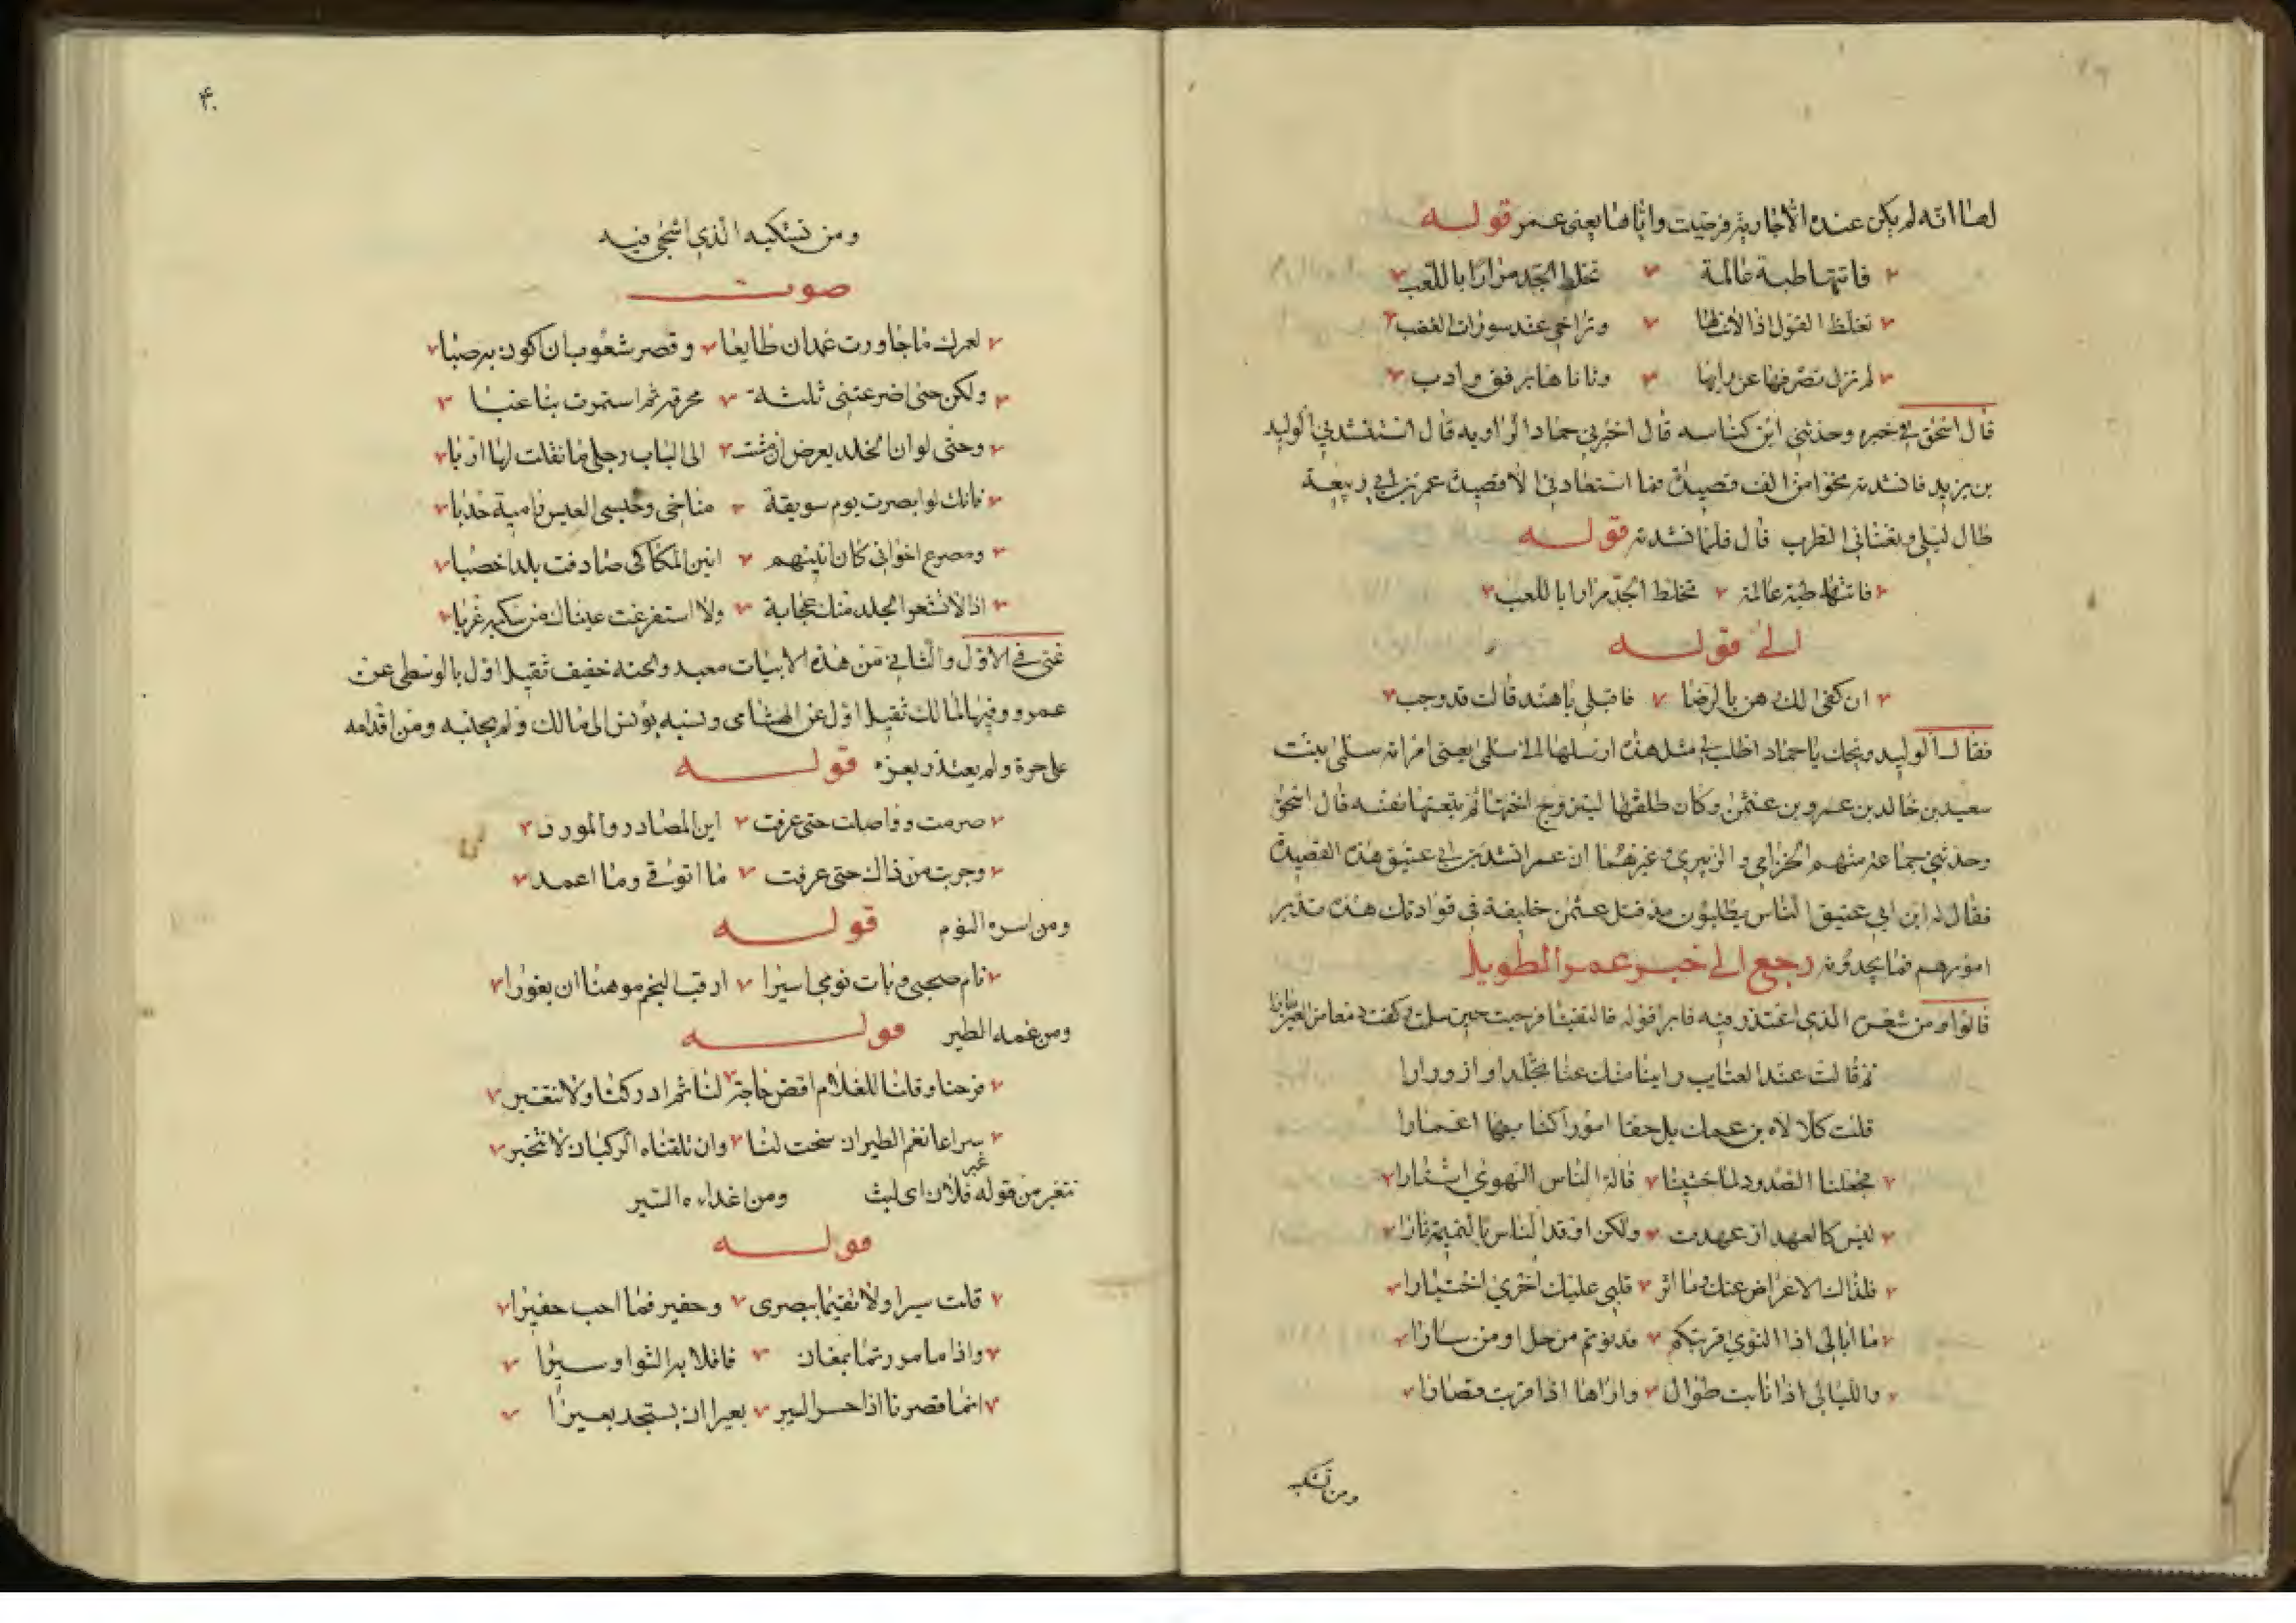 لها انه لم يكن عنده الا جاريته فرضيت واياها يعنى عمر قوله
فاتتها طبة عالمة تخلط الجد مرارا باللعب
تغلظ القول اذا لانت لها وتراخى عند سورات الغضب
لم تزل تصرفها عن رايها وتاناها برفق وادب
قال اسحق في خبره وحدثني ابن كناسه قال اخبرني حماد الراويه قال استنشدني الوليد
بن يزيد فانشدته نحوا من الف قصيدة فما استعادني الا قصيدة عمر بن ابي ربيعة
طال ليلى وتعناني الطرب قال فلما انشدته قوله
فاتتها طبة عالمة تخلط الجد مرارا باللعب
الى قوله
ان كفى لك رهن بالرضا فاقبلي يا هند قالت قد وجب
فقال الوليد ويحك يا حماد اطلب لي مثل هذه ارسلها الى سلمى يعنى امراته سلمى بنت
سعيد بن خالد بن عمرو بن عثمن وكان طلقها ليتزوج اختها ثم تتبعتها نفسه قال اسحق
وحدثني جماعة منهم الحزامي والزبيري وغيرهما ان عمر انشد بن ابي عتيق هذه القصيدة
فقال له ابن ابي عتيق الناس يطلبون مذ قتل عثمن خليفة في قوادتك هذه تدبر
امورهم فما يجدونه رجع الى خبر عمر الطويل
قالوا ومن شعره الذي اعتذر فيه فابر قوله فالتقينا فرحبت حين سلمت وكفت دمعا من العين مارا
ثم قالت عند العتاب راينا منك عنا تجلدا وازورارا
قلت كلا لاه بن عمك بل خفنا امورا كنا بها اغمارا
فجعلنا الصدود لما خشينا قالة الناس للهوى استارا
ليس كالعهد اذ عهدت ولكن اوقد الناس بالنميمة نارا
فلذاك الاعراض عنك وما اثر قلبي عليك اخرى اختيارا
ما ابالي اذا النوى قربتكم فدنوتم من حل او من سارا
والليالي اذا نايت طوال واراها اذا قربت قصارا
ومن تشكيه
۴۰
ومن تشكيه الذي اشجى فيه
صوت
لعمرك ما جاورت غمدان طايعا وقصر شعوب ان اكون به صبا
ولكن حمى اضرعتني ثلثة محرقة ثم استمرت بنا غبا
وحتى لو ان الخلد يعرض ان مشت الى الباب رجلي ما نقلت لها اربا
فانك لو ابصرت يوم سويقة مناخي وحبسي العيس دامية حدبا
ومصرع اخواني كان انينهم انين المكاكى صادفت بلدا خصبا
اذا لاقشعر الجلد منك عجابة ولا استفرغت عيناك من سكبه غربا
غنى في الاول والثاني من هذه الابيات معبد ولحنه خفيف ثقيل اول بالوسطى عن
عمرو وفيها لمالك ثقيل اول عن الهشامى ونسبه يونس الى مالك ولم يجنسه ومن اقدامه
على حرة ولم يعتذر بعزه قوله
صرمت وواصلت حتى عرفت اين المصادر والمورد
وجربت من ذاك حتى عرفت ما اتوقى وما اعمد
ومن اسره النوم قوله
نام صحبى وبات نومي اسيرا ارقب النجم موهنا ان يغورا
ومن غمه الطير قوله
فرحنا وقلنا للغلام اقض حاجة لنا ثم ادركنا ولا تتغبر
سراعا نغم الطير ان سنحت لنا وان تلقنا الركبان لا نتخبر
تتغبر من قوله غبر فلان اى لبث ومن اغداءه السير
قوله
قلت سيرا ولا تقيما ببصرى وحفير فما احب حفيرا
واذا ما مررتما بمعان فاقلا به الثوا وسيرا
انما قصرنا اذا حسر السير بعيرا ان نستجد بعيرا